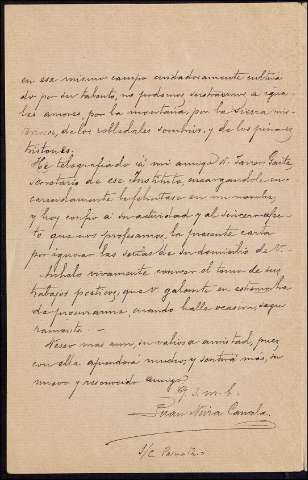 en ese mismo campo cuidadosamente cultiva
do por su talento, no podemos sustraernos a igua
les amores, por la montaña, por la Sierra mis-
de los robledales sombrios, y de los pinares
tristones.
He telegrafiado á mi amigo D.
secretario de ese Instituto, encargandole en-
carecidamente le felicitase en mi nombre,
y hoy confio a su actividad y al sincero afec-
to que nos profesamos, la presente carta
por ignorar las señas de su domicilio de V.
Anhelo vivamente conocer el tomo de sus
trabajos poeticos, que V. galante en extremo ha
de procurarme, cuando halle ocasion, segu
ramente.—
Deseo mas aun, su valiosa amistad, pues
con ella aprenderá mucho y sentirá más, su
nuevo y reconocido amigo
q. s. m. b.
Juan
S/C